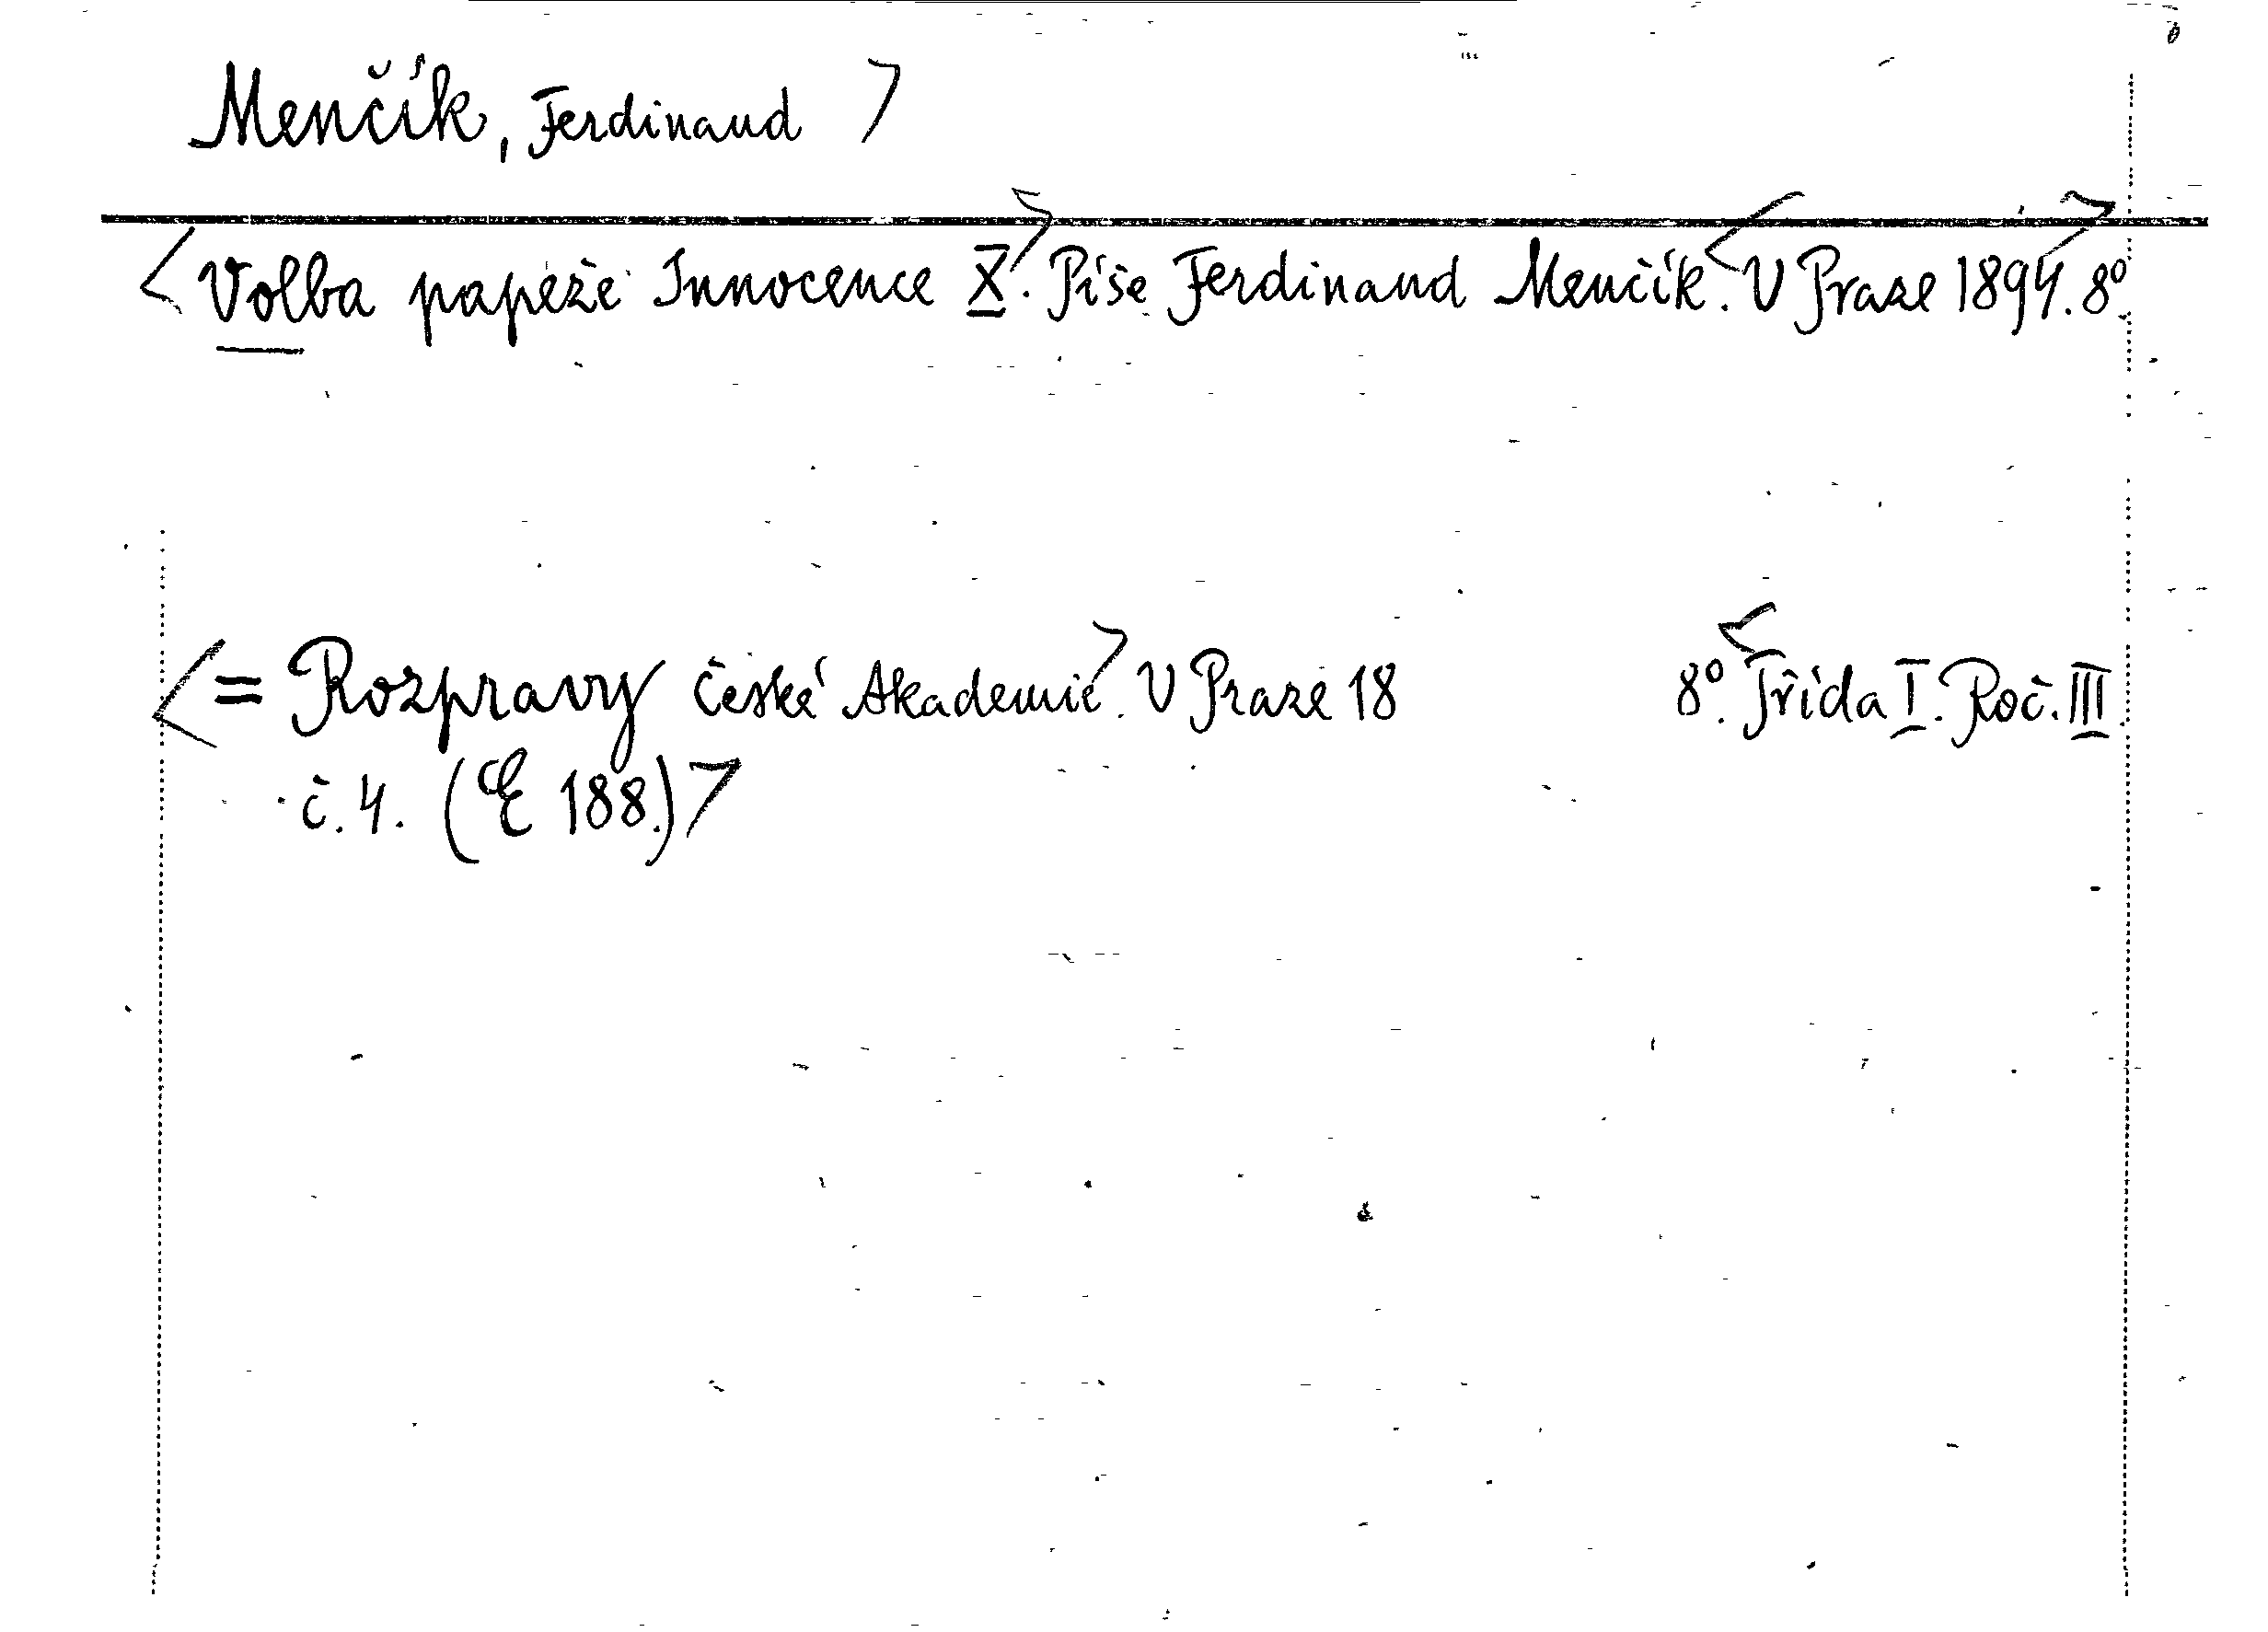 Menčík, Ferdinand >
<Volba papeže Innocence X>. Píše Ferdinand Menčík. <V Praze 1894>. 8º.
<= Rozpravy České Akademie>. V Praze 18 8º. <Třída I. Roč. III.
č. 4. (E 188.)>